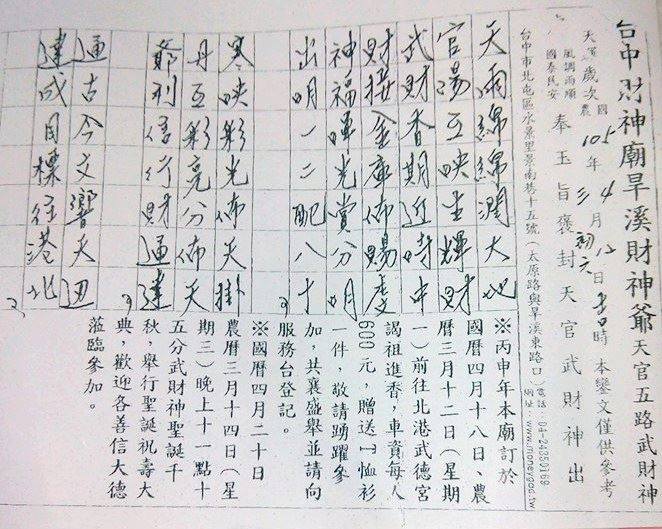 台中財神廟旱溪財神爺天官五路武財神
天運歲次國農105年4月12日吉時本鑾文僅供參考
三 初六
風調雨順
國泰民安
奉玉旨褒封天官武財神出
台中市北屯區水景里景南巷十五號(太原路與旱溪東路口)電話:04-24350168
網址:www.moneygod.tw
天雨綿綿潤大地
官湯互映生輝財
武財香期近時中
財接金庫佈賜慶
神福暉光賞分明
出明一二配八十
寒映彩光佈天掛
丹互彩亮分佈天
爺利信行財通達
通古今文響天迴
達成目標往港北
※丙申年本廟訂於
國曆四月十八日、農
曆三月十二日(星期
一)前往北港武德宮
謁祖進香,車資每人
600元,贈送T恤衫
一件,敬請踴躍參
加,共襄盛舉並請向
服務台登記。
※國曆四月二十日
農曆三月十四日(星
期三)晚上十一點十
五分武財神聖誕千
秋,舉行聖誕祝壽大
典,歡迎各善信大德
蒞臨參加。